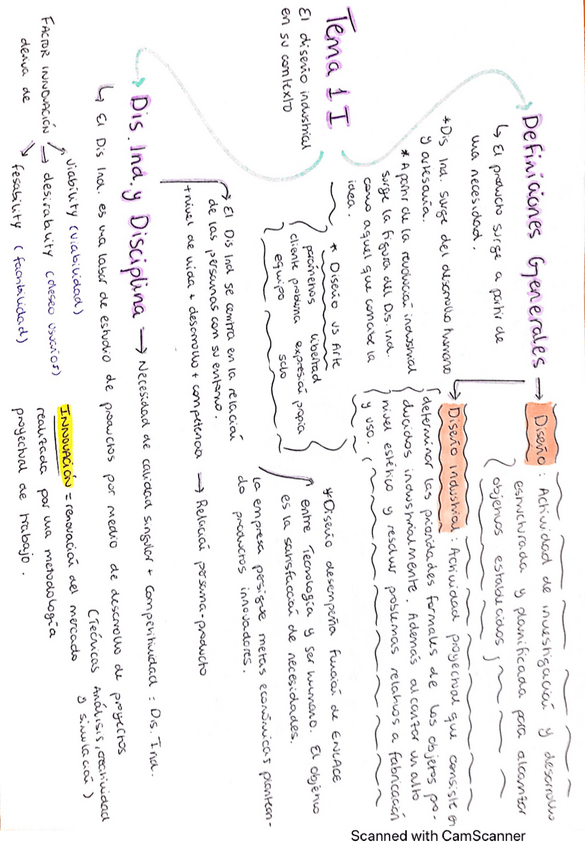 Tema 1 I
El diseño industrial
en su contexto
Definiciones Generales
↳ El producto surge a partir de
una necesidad.
*Dis Ind. surge del desarrollo humano
y artesanía.
* A partir de la revolución industrial
surge la figura del Dis. Ind.
como aquel que concibe la
idea.
Diseño: Actividad de investigación y desarrollo
estructurada y planificada para alcanzar
objetivos establecidos
Diseño Industrial: Actividad proyectual que consiste en
determinar las propiedades formales de los objetos pro-
ducidos industrialmente. Además al contar un alto
nivel estético y resolver problemas relativos a fabricación
y uso.
* Diseño vs Arte
parámetros libertad
cliente problema expresión propia
equipo solo
* Diseño desempeña función de ENLACE
entre Tecnología y ser humano. El objetivo
es la satisfacción de necesidades.
la empresa persigue metas económicas plantean-
do productos innovadores.
→ El Dis Ind se centra en la relación
de las personas con su entorno.
+ nivel de vida + desarrollo + competencia → Relación persona-producto
Dis. Ind. y Disciplina → Necesidad de cualidad singular + competitividad = Dis. Ind.
↳ El Dis Ind. es una labor de estudio de productos por medio de desarrollo de proyectos
(Técnicas Análisis, creatividad
y simulación)
FACTOR INNOVACIÓN
deriva de
viability (viabilidad)
desirability (deseo usuarios)
fesability (factibilidad)
INNOVACIÓN = renovación del mercado
realizada por una metodología
proyectual de trabajo.
Scanned with CamScanner